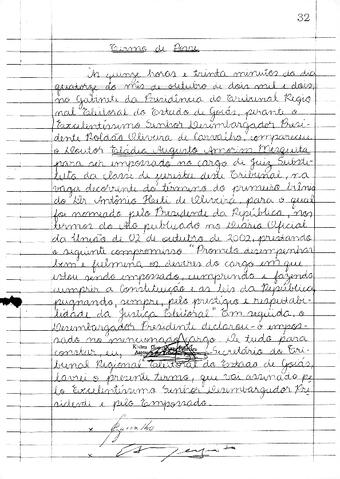 32
Termo de Posse
Às quinze horas e trinta minutos do dia
quatorze do mês de outubro de dois mil e dois,
no Gabinete da Presidência do Tribunal Regio
nal Eleitoral do Estado de Goiás, perante o
Excelentíssimo Senhor Desembargador Presi-
dente Roldão Oliveira de Carvalho, compareceu
o Doutor Eládio Augusto Amorim Mesquita
para ser empossado no cargo de Juiz Substi-
tuto da classe de jurista deste Tribunal, na
vaga decorrente do término do primeiro biênio
do Dr. Antônio Heli de Oliveira, para o qual
foi nomeado pelo Presidente da República, nos
termos do Ato publicado no Diário Oficial
da União de 02 de outubro de 2002, prestando
o seguinte compromisso: "Prometo desempenhar
bem e fielmente os deveres do cargo em que
estou sendo empossado, cumprindo e fazendo
cumprir a Constituição e as leis da República,
pugnando, sempre, pelo prestígio e respeitabi-
lidade da Justiça Eleitoral". Em seguida, o
Desembargador Presidente declarou-o empos-
sado no mencionado cargo. De tudo para
constar, eu, Secretária do Tri-
bunal Regional Eleitoral do Estado de Goiás,
lavrei o presente termo, que vai assinado pe-
lo Excelentíssimo Senhor Desembargador Pre-
sidente e pelo Empossado.
x
x